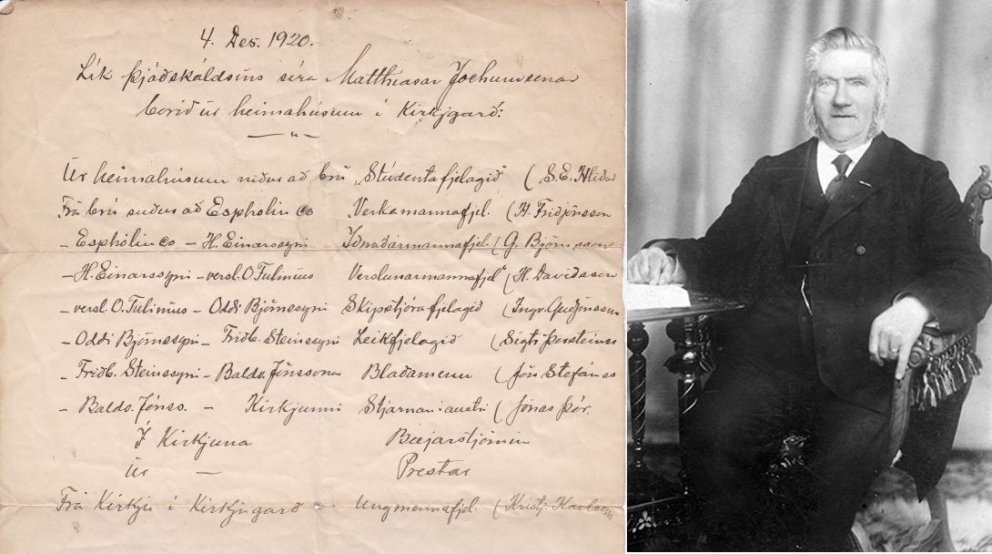 4. Des. 1920.
Lík þjóðskáldsins síra Matthíasar Jochumssonar
borið úr heimahúsum í Kirkjgarð:
— " —
Úr heimahúsum niður að brú „Stúdentafjelagið (S.E. Hlíðar
Frá brú suður að Espholin Co Verkamannafjel. (H. Friðjónsson
- Espholin co - H. Einarssyni Iðnaðarmannafjel. (G. Björnsson
- H. Einarssyni - versl. O. Tulinius Verslunarmannafjel" (H. Davíðsson
- versl. O. Tulinius - Oddi Björnssyni Skipstjórafjelagið (Ingv. Guðjónsson
- Oddi Björnssyni - Friðb. Steinssyni Leikfjelagið (Sigtr. Þorsteinss
- Friðb. Steinssyni - Baldv. Jónssonar Blaðamenn (Jón Stefánss
- Baldv. Jónss. - Kirkjunni Stjarnan í austri (Jónas Þór.
Í Kirkjuna Bæjarstjórnin
Úr — Prestar
Frá Kirkju í Kirkjugarð Ungmannafjel. (Kristj. Karlsson